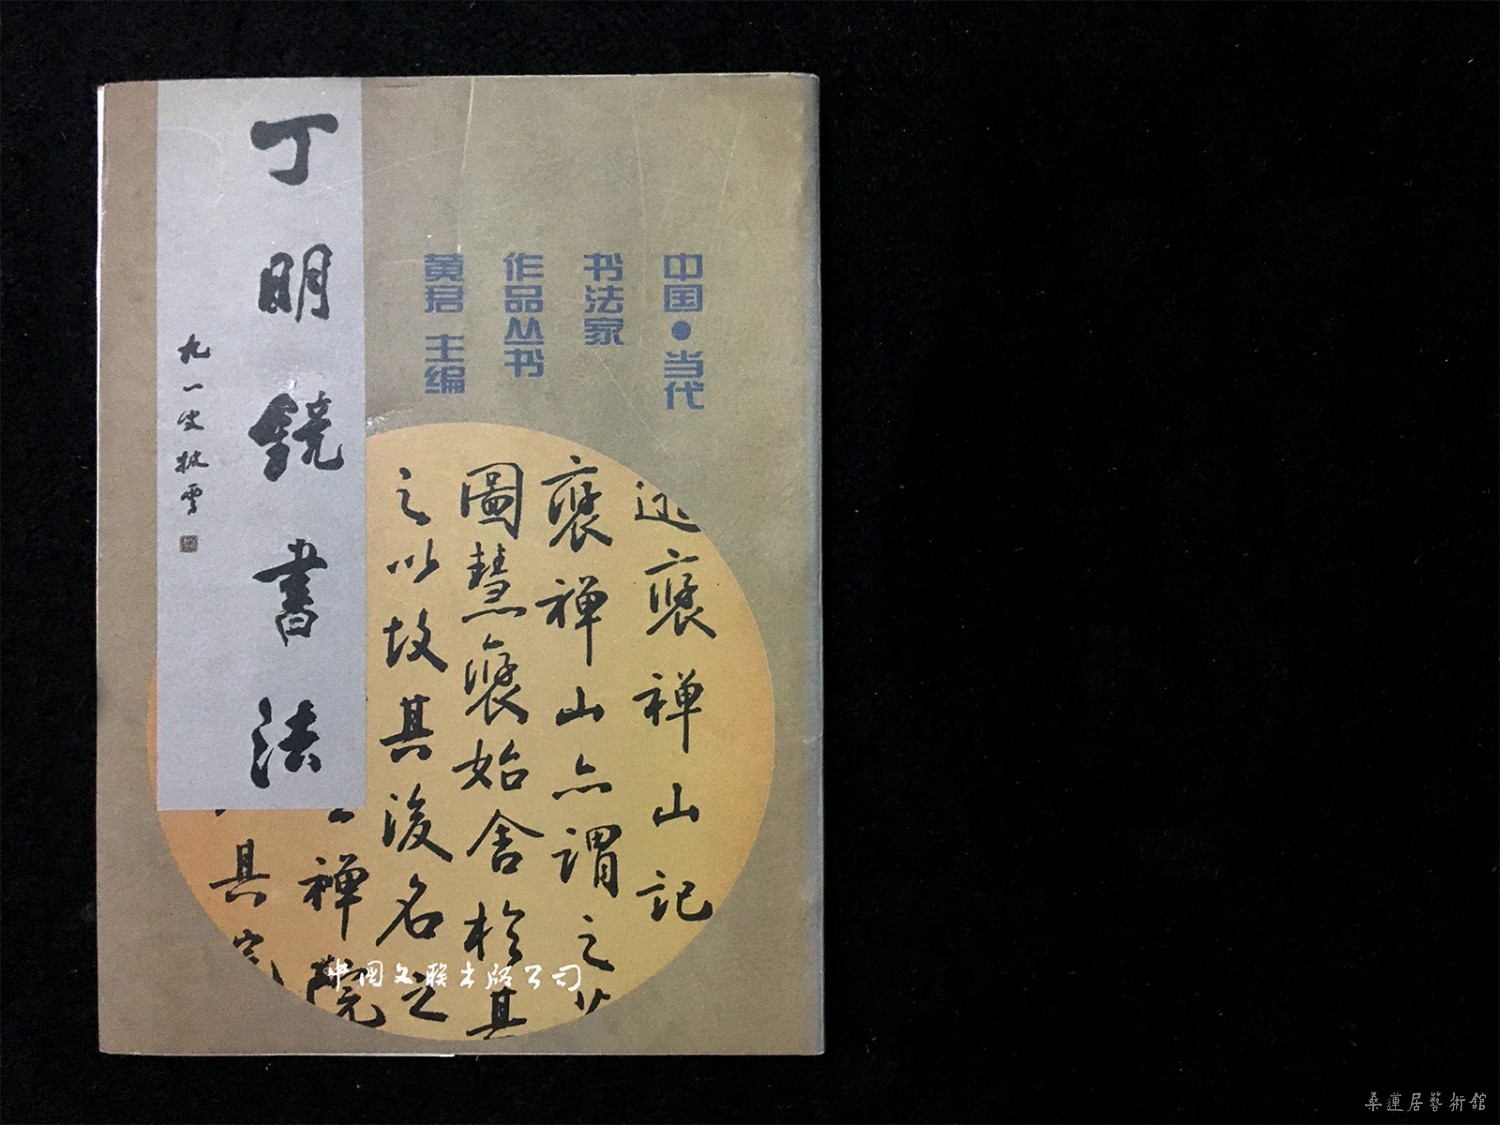 中国·当代
书法家
作品丛书
黄君 主编
丁明镜書法
九一叟披雲
遊褒禅山記
褒禅山亦謂之華
圖慧褒始舍於其
之以故其後名之
禅院
其
中国文联出版公司
桑蓮居藝術館